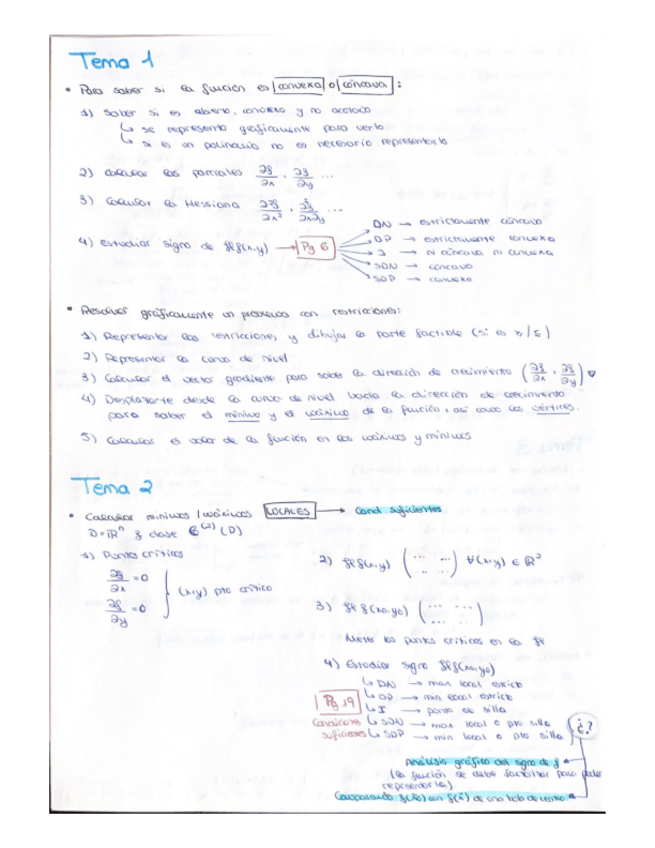 Tema 1
• Para saber si la función es convexa o cóncava :
1) Saber si es abierto, convexo y no acotado
↳ se representa gráficamente para verlo
↳ si es un polinomio no es necesario representarlo
2) Calcular las parciales ∂f/∂x , ∂f/∂y ...
3) Calcular la Hessiana ∂²f/∂x² , ∂²f/∂x∂y ...
4) Estudiar signo de Hf(x,y) → Pg 6
DN → estrictamente cóncava
DP → estrictamente convexa
I → ni cóncava ni convexa
SDN → cóncava
SDP → convexa
• Resolver gráficamente un problema con restricciones:
1) Representar las restricciones y dibujar la parte factible (si es ≥/≤)
2) Representar la curva de nivel
3) Calcular el vector gradiente para saber la dirección de crecimiento (∂f/∂x , ∂f/∂y)
4) Desplazarte desde la curva de nivel hacia la dirección de crecimiento
para saber el mínimo y el máximo de la función, así como los vértices.
5) Calcular el valor de la función en los máximos y mínimos
Tema 2
• Calcular mínimos / máximos LOCALES → Cond. suficientes
D=ℝⁿ f clase C⁽²⁾ (D)
1) Puntos críticos
∂f/∂x = 0
∂f/∂y = 0
(x,y) pto crítico
2) Hf(x,y) (... ...) ∀(x,y) ∈ ℝ²
3) Hf(x₀,y₀) (... ...)
Meter los puntos críticos en la H
4) Estudiar signo Hf(x₀,y₀)
↳ DN → max local estricto
↳ DP → min local estricto
↳ I → punto de silla
↳ SDN → max local o pto silla
↳ SDP → min local o pto silla
Pg 19
Condiciones suficientes
¿?
Análisis gráfico del signo de f
(la función se debe factorizar para poder
representarla)
Comparando f(x̄₀) con f(x̄) de una bola de centro